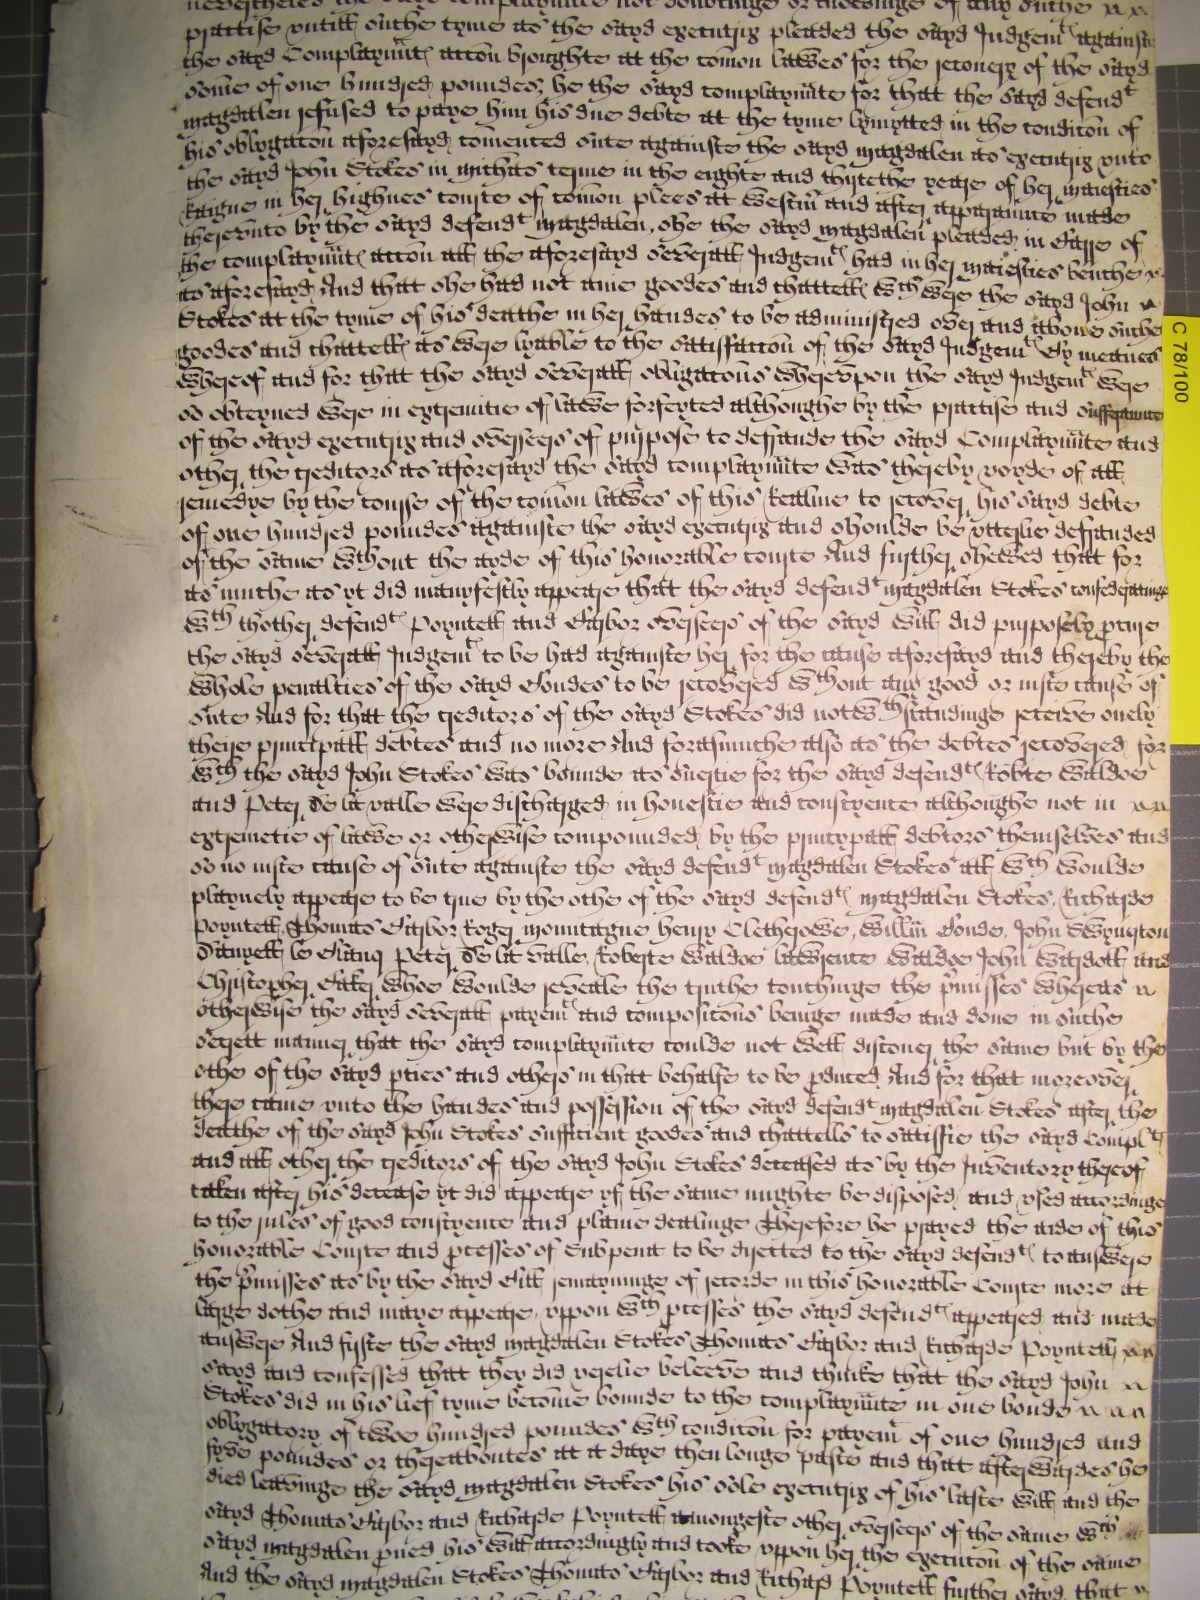 nevertheles the said complaynante not doubtinge or mistrustinge of any suche
practise untill suche tyme as the sayd executrix pleaded the sayd Judgemtes againste
the sayd Complaynãtes accon broughte at the comon lawes for the recovery of the sayd
some of one hundred poundes, he the sayd complaynãte for that the sayd defendt
magdalen refused to paye him his due debte at the tyme lymytted in the condicon of
his oblygacon aforesayd comenced suite againste the sayd magdalen as executrix unto
the sayd John Stokes in michãs terme in the eighte and thirtethe yeare of her maiesties
Raigne in her highnes courte of comon plees at Westm̃ and after apparaunte made
therevnto by the sayd defendt magdalen, she the sayd magdalen pleaded in barre of
the complaynãtes accon all the aforesayd severall Judgemtes had in her maiesties benche
as aforesayd, And that she had not anie goodes and chattells wch were the sayd John
Stokes at the tyme of his deathe in her handes to be administred over and above suche
goodes and chattells as were lyable to the satisfaccon of the sayd Judgemtes By meanes
whereof and for that the sayd severall obligacons wherevpon the sayd Judgemtes were
so obteyned were in extremitie of lawe forfeyted althoughe by the practise and sufferaunce
of the sayd executrix and overseers of purpose to deffraude the sayd Complaynãte and
other the creditors as aforesayd the sayd complaynãte was thereby voyde of all
remedye by the course of the comon lawes of this Realme to recover his sayd debte
of one hundred poundes againste the sayd executrix and shoulde be vtterlie defrauded
of the same wthout the ayde of this honorable courte And further shewed that for
as muche as yt did manyfestly appeare that the sayd defendt magdalen Stokes confederatinge
wth thother defendtes Poyntell and Barbor overseers of the sayd will did purposely pcure
the sayd severall Judgemtes to be had againste her for the cause aforesayd and thereby the
whole penalties of the sayd Bondes to be recovered wthout any good or iuste cause of
suite And for that the creditors of the sayd Stokes did notwthstandinge receive onely
theire principall debtes and no more And forasmuche also as the debtes recovered for
wch the sayd John Stokes was bounde as suertie for the sayd defendtes Robte Waldoe
and Peter De la valle were discharged in honestie and conscyence althoughe not in
extremetie of lawe or otherwise compounded by the princypall debtors themselves and
so no iuste cause of suite againste the sayd defendt magdalen Stokes all wch woulde
playnely appeare to be true by the othe of the sayd defendtes magdalen Stokes, Richarde
Poyntell, Thomas Barbor Roger mountague henry Cletherowe, Willm̃ Bonde, John Swynerton
Danyell le Blanq Peter De la valle, Roberte Waldoe lawrence Waldoe John Wardoll and
Christopher Baker whoe woulde reveale the truthe touchinge the p̃misses whereas
otherwise the sayd severall paymtes and composicons beinge made and done in suche
secrett manner that the sayd complaynãte coulde not well discover the same but by the
othe of the sayd pties and others in that behalfe to be pduced And for that moreover
there came vnto the handes and possession of the sayd defendt magdalen Stokes after the
deathe of the sayd John Stokes sufficient goodes and chattells to satisfie the sayd complt
and all other the creditors of the sayd John Stokes deceased as by the Inventory thereof
taken after his decease yt did appeare yf the same mighte be disposed and vsed accordinge
to the rules of good conscyence and plaine dealinge Therefore he prayed the aide of this
honorable Courte and pcesses of Subpena to be directed to the sayd defendtes to answere
the p̃misses as by the sayd Bill remayninge of recorde in this honorable Courte more at
large dothe and maye appeare, vppon wch pcesses the sayd defendtes appeared and made
answere And firste the sayd magdalen Stokes Thomas Barbor and Richarde Poyntell
sayd and confessed that they did verelie beleeve and thinke that the sayd John
Stokes did in his lief tyme become bounde to the complaynãte in one bonde
oblygatory of twoe hundred poundes wth condicon for paymt of one hundred and
fyve poundes or thereaboutes at a daye then longe paste and that afterwardes he
died leavinge the sayd magdalen Stokes his sole executrix of his laste will and the
sayd Thomas Barbor and Richarde Poyntell amongeste other overseers of the same wch
sayd magdalen pued his will accordingly and tooke vppon her the execucon of the same
And the sayd magdalen Stokes Thomas Barbor and Richard Poyntell further sayd that
C 78/100